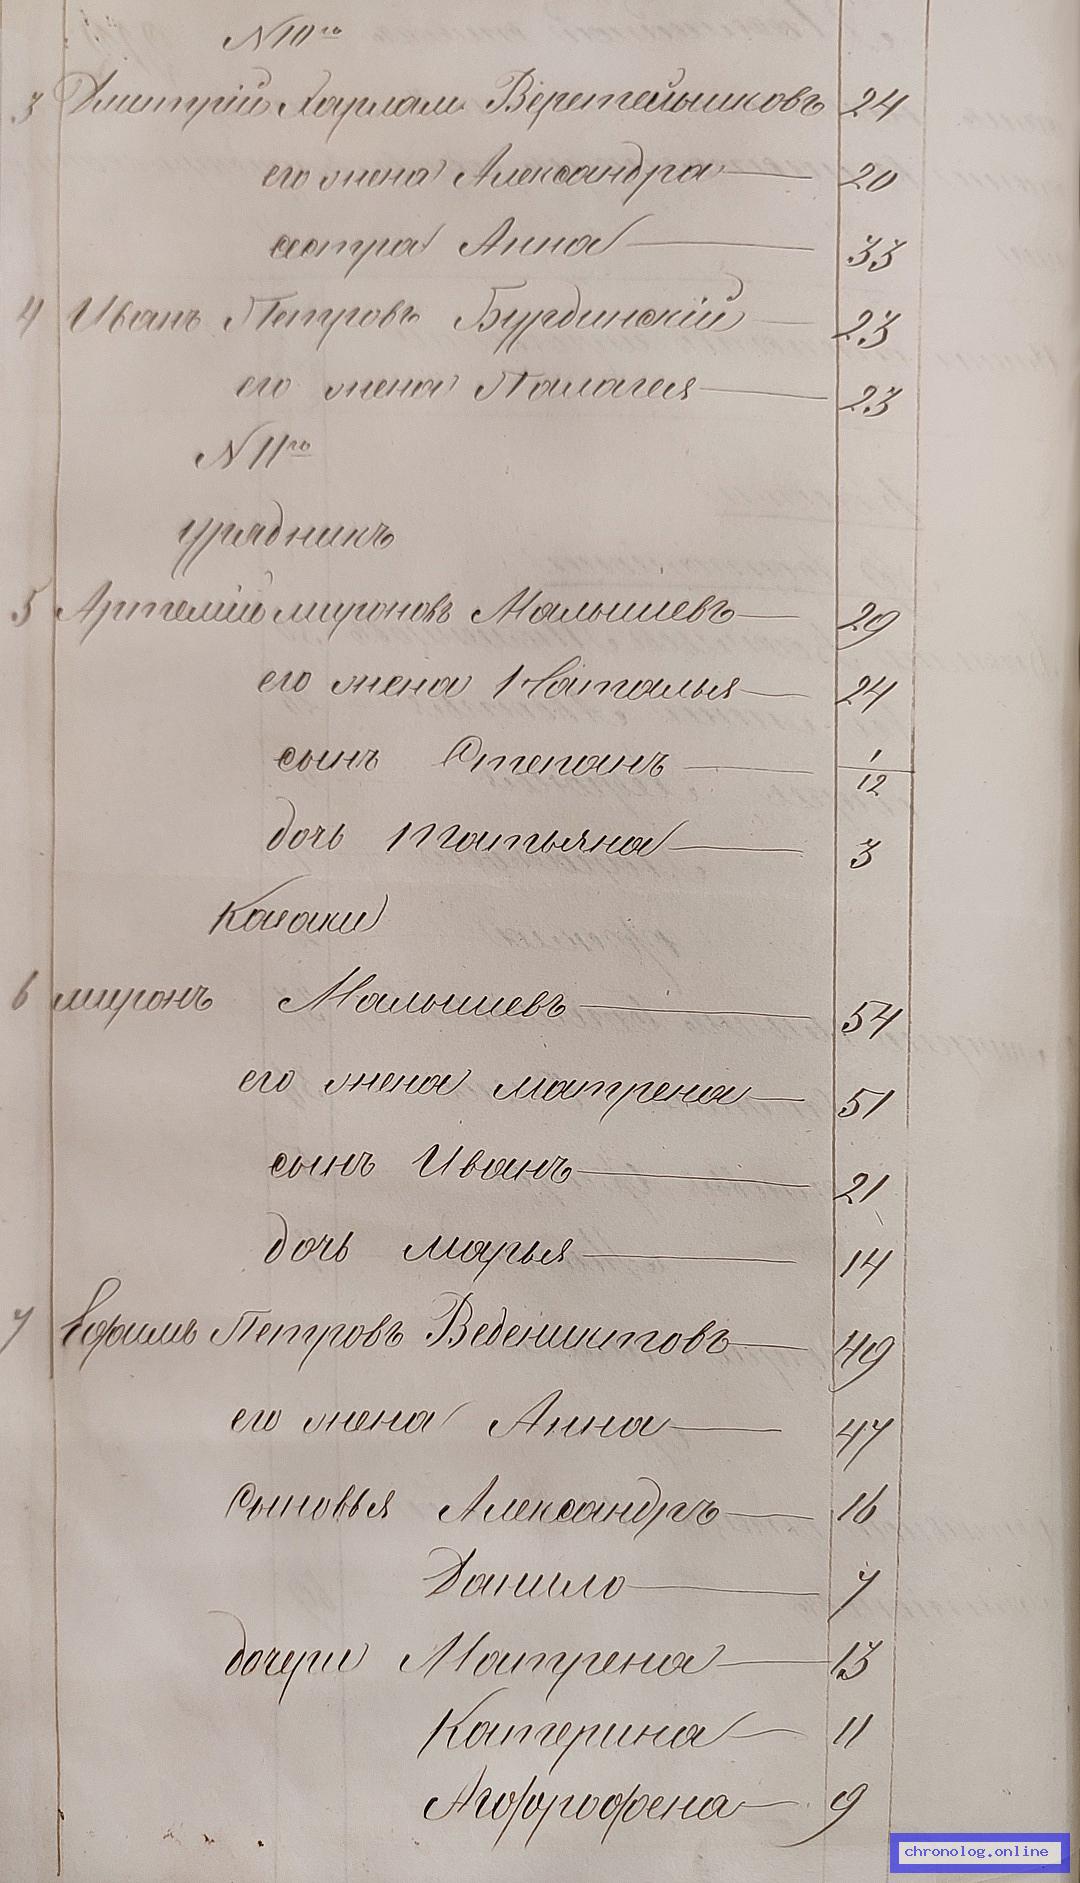 N 10го
3 Дмитрій Харлам. Веретельниковъ 24
его жена Александра 20
сестра Анна 33
4 Иванъ Петровъ Бурдинскій 23
его жена Палагея 23
N 11го
урядникъ
5 Артемій мироновъ Малышевъ 29
его жена Наталья 24
сынъ Степанъ 1/12
дочь Татьяна 3
Казаки
6 миронъ Малышевъ 54
его жена матрена 51
сынъ Иванъ 21
дочь марья 14
7 Ефимъ Петровъ Веденихтовъ 49
его жена Анна 47
сыновья Александръ 16
Данило 7
дочери Матрена 13
Катерина 11
Агофрофена 9
chronolog.online